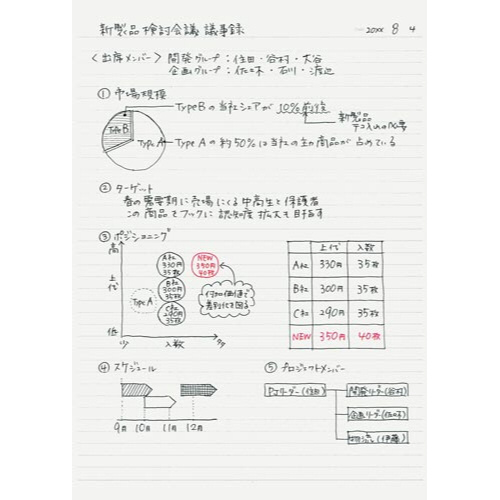 新製品検討会議 議事録
20XX 8 4
〈出席メンバー〉 開発グループ：住田・谷村・大谷
企画グループ：佐々木・石川・渡辺
① 市場規模
Type Bの当社シェアが 10%前後
新製品
テコ入れの必要
Type B
Type A
Type Aの約50%は当社の主力商品が占めている
② ターゲット
春の需要期に売場にくる中高生と保護者
この商品をフックに認知度拡大も目指す
③ ポジショニング
高
上代
低
少
入数
多
Type A
A社
330円
35枚
B社
300円
35枚
C社
290円
35枚
NEW
350円
40枚
付加価値で
差別化を図る
上代 入数
A社 330円 35枚
B社 300円 35枚
C社 290円 35枚
NEW 350円 40枚
④ スケジュール
9月 10月 11月 12月
⑤ プロジェクトメンバー
PJリーダー(住田)
開発リーダー(谷村)
企画リーダー(佐々木)
物流(伊藤)